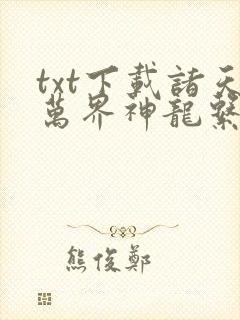 txt下載諸天
萬界神龍繫
熊俊鄭